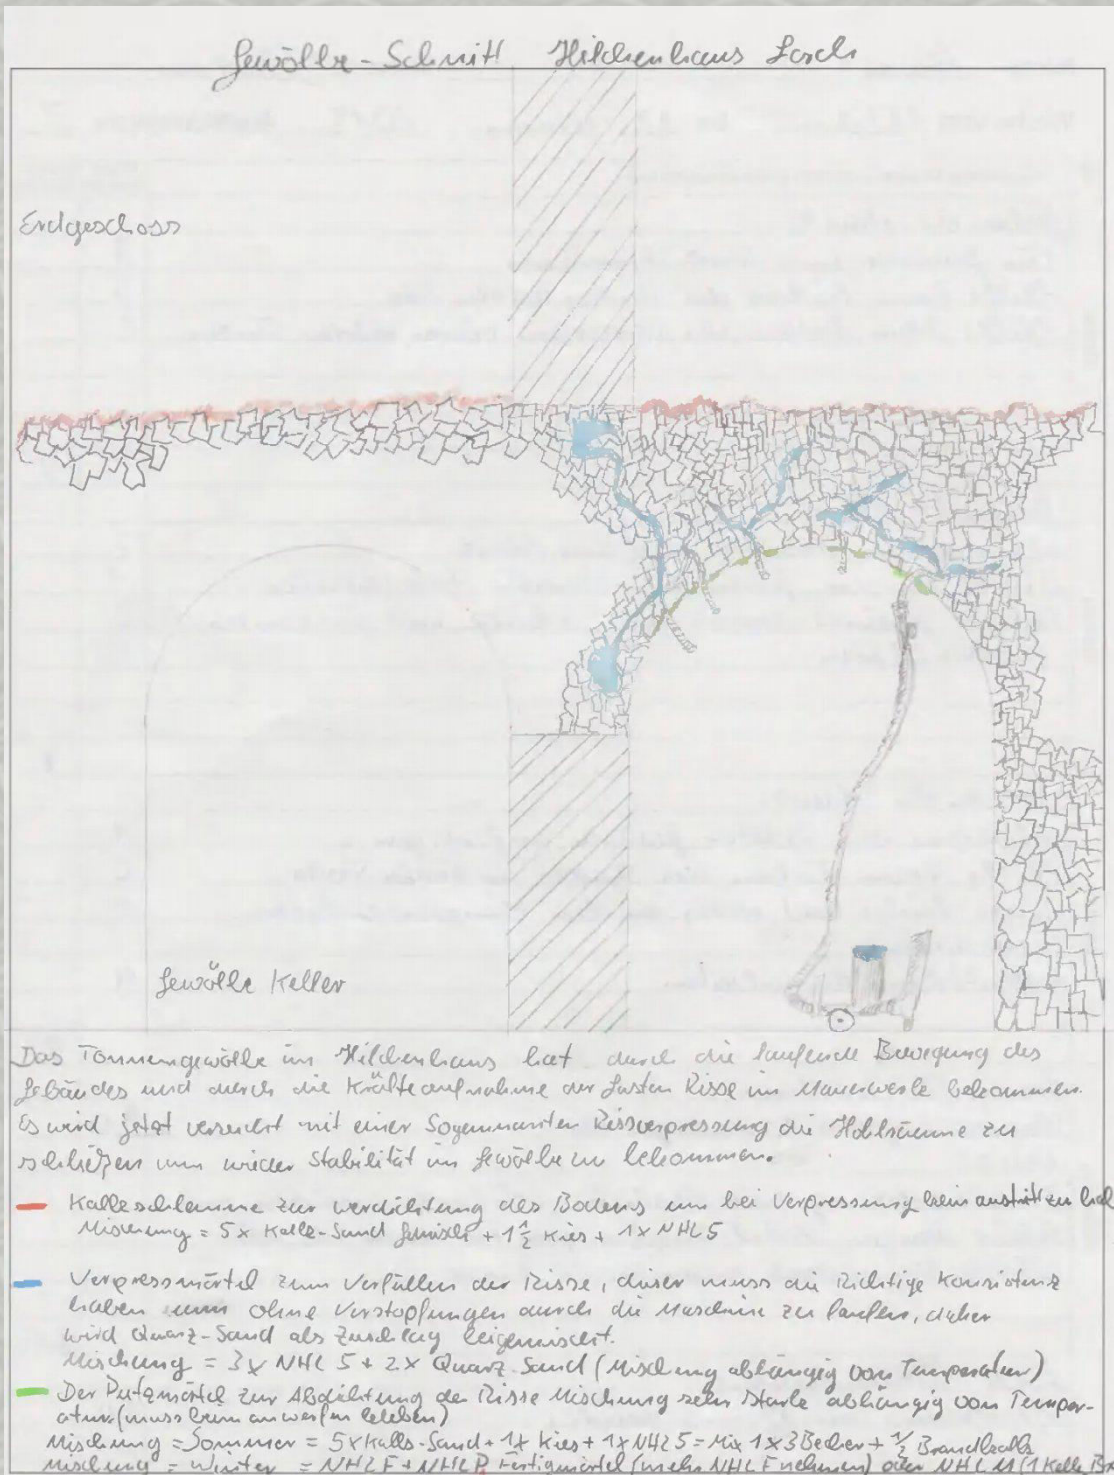 Gewölbe-Schnitt Hilchenhaus Lorch
Erdgeschoss
Gewölbe Keller
Das Tonnengewölbe im Hilchenhaus hat durch die laufende Bewegung des
Gebäudes und durch die Kräfteaufnahme der Lasten Risse im Mauerwerk bekommen.
Es wird jetzt versucht mit einer Sogennanten Rissverpressung die Hohlräume zu
schließen um wieder Stabilität im Gewölbe zu bekommen.
Kalkschlemme zur verdichtung des Bodens um bei Verpressung kein austritt zu
Mischung = 5x Kalk-Sand Gemisch + 1½ Kies + 1x NHL5
Verpressmörtel zum Verfüllen der Risse, dieser muss die Richtige Konsistenz
haben um ohne Verstopfungen durch die Maschine zu laufen, daher
wird Quarz-Sand als Zuschlag beigemischt.
Mischung = 3x NHL 5 + 2x Quarz-Sand (Mischung abhängig von Temperatur)
Der Putzmörtel zur Abdichtung der Risse Mischung sehr stark abhängig von Temper-
atur (muss beim anwerfen kleben)
Mischung = Sommer = 5x Kalk-Sand + 1x Kies + 1x NHL5 = Mix 1x3 Becher + ½ Brandkalk
Mischung = Winter = NHL F + NHL P Fertigmörtel (mehr NHL F nehmen) oder NHL M (1 Kelle